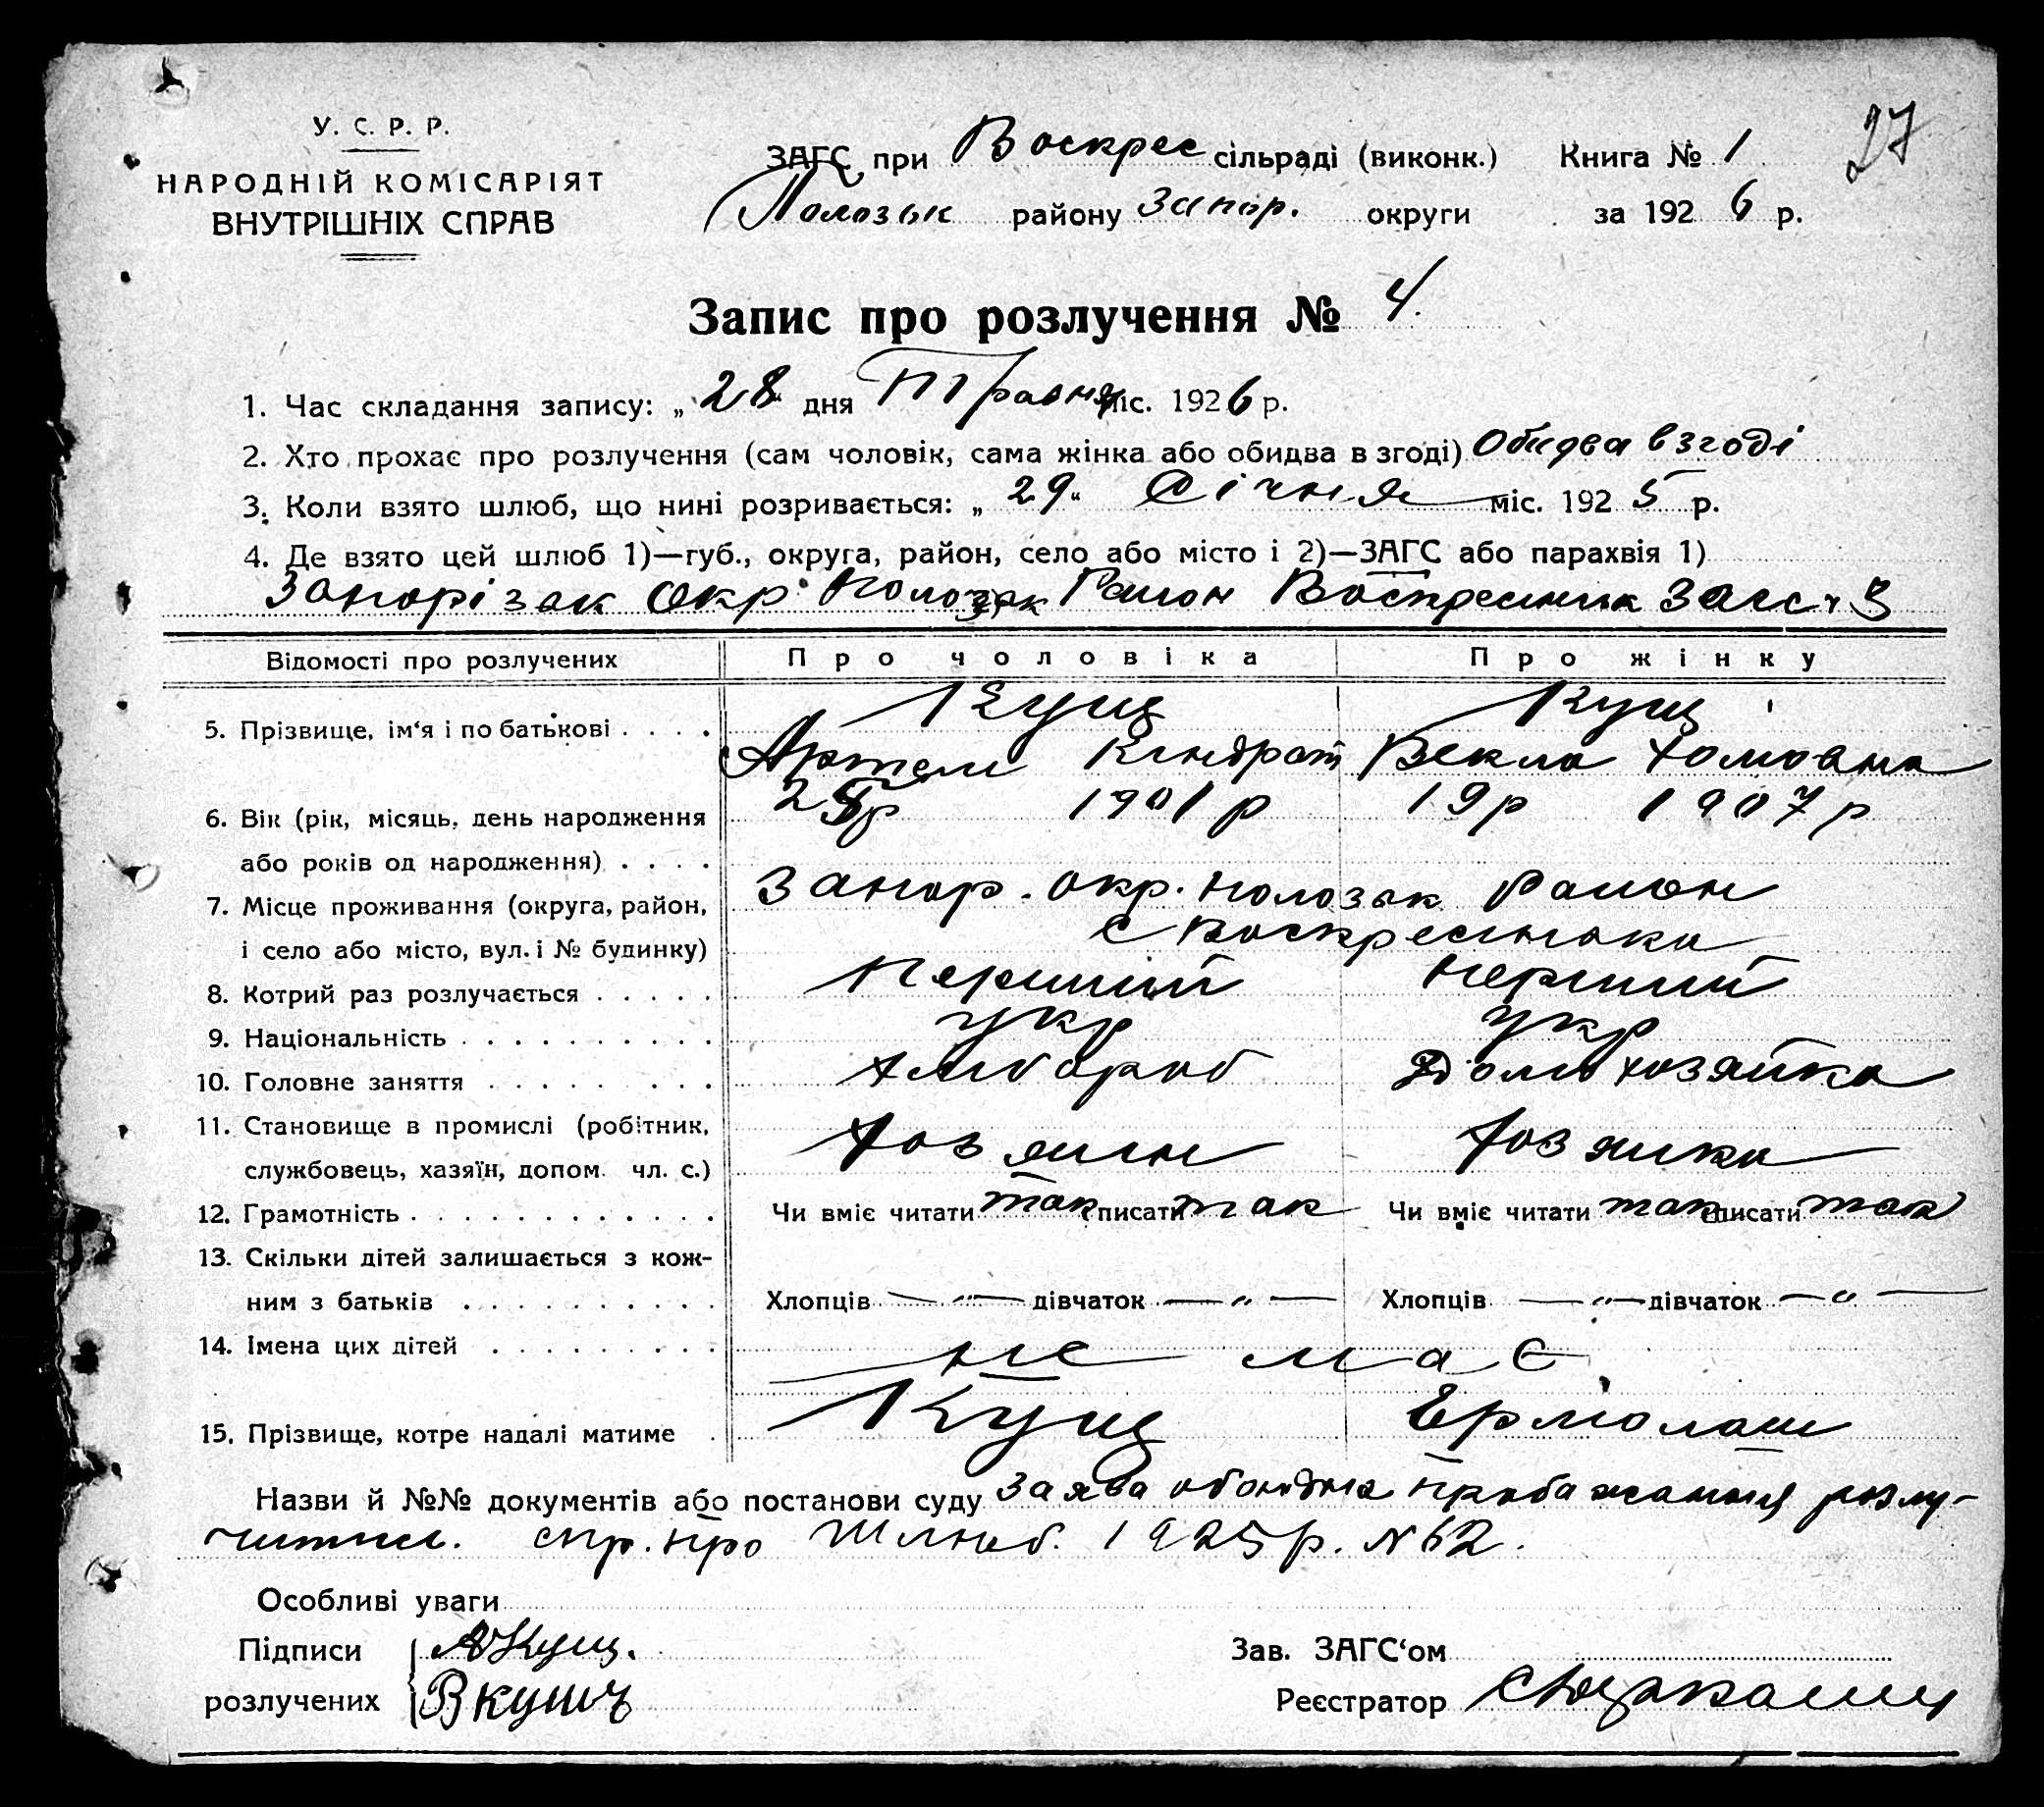 27
У. С. Р. Р.
НАРОДНІЙ КОМІСАРІЯТ
ВНУТРІШНІХ СПРАВ
ЗАГС при Воскрес сільраді (виконк.) Книга № 1
Полозьк району Запор. округи за 1926 р.
Запис про розлучення № 4.
1. Час складання запису: „28" дня Травня міс. 1926 р.
2. Хто прохає про розлучення (сам чоловік, сама жінка або обидва в згоді) Обидва в згоді
3. Коли взято шлюб, що нині розривається: „29" Січня міс. 1925 р.
4. Де взято цей шлюб 1)—губ., округа, район, село або місто і 2)—ЗАГС або парахвія 1)
Запорізак Окр Полозак Район Воскресенськ Загс
Відомості про розлучених Про чоловіка Про жінку
5. Прізвище, ім'я і по батькові . . . . Кущ Кущ
Артем Кіндрат Векла Хомовна
6. Вік (рік, місяць, день народження 1901 р 19 р 1907 р
або років од народження) . . . .
7. Місце проживання (округа, район, Запор. окр. Полозак Район
і село або місто, вул. і № будинку) с Воскресенока
8. Котрий раз розлучається . . . . . Перший Перший
9. Національність . . . . . . . . . . укр укр
10. Головне заняття . . . . . . . . Хлібороб Домохозяйка
11. Становище в промислі (робітник, Хозяин Хозяика
службовець, хазяїн, допом. чл. с.)
12. Грамотність . . . . . . . . . . . . Чи вміє читати так писати так Чи вміє читати так писати так
13. Скільки дітей залишається з кож-
ним з батьків . . . . . . . . . . Хлопців — „ — дівчаток — „ — Хлопців — „ — дівчаток — „ —
14. Імена цих дітей . . . . . . . . . не має
15. Прізвище, котре надалі матиме . Кущ Ермолаш
Назви й №№ документів або постанови суду Заява обоюдна про бажання розлу-
читись. спр. про Шлюб. 1925 р. № 62.
Особливі уваги
Підписи А Кущ. Зав. ЗАГС'ом
розлучених В кушч Реєстратор